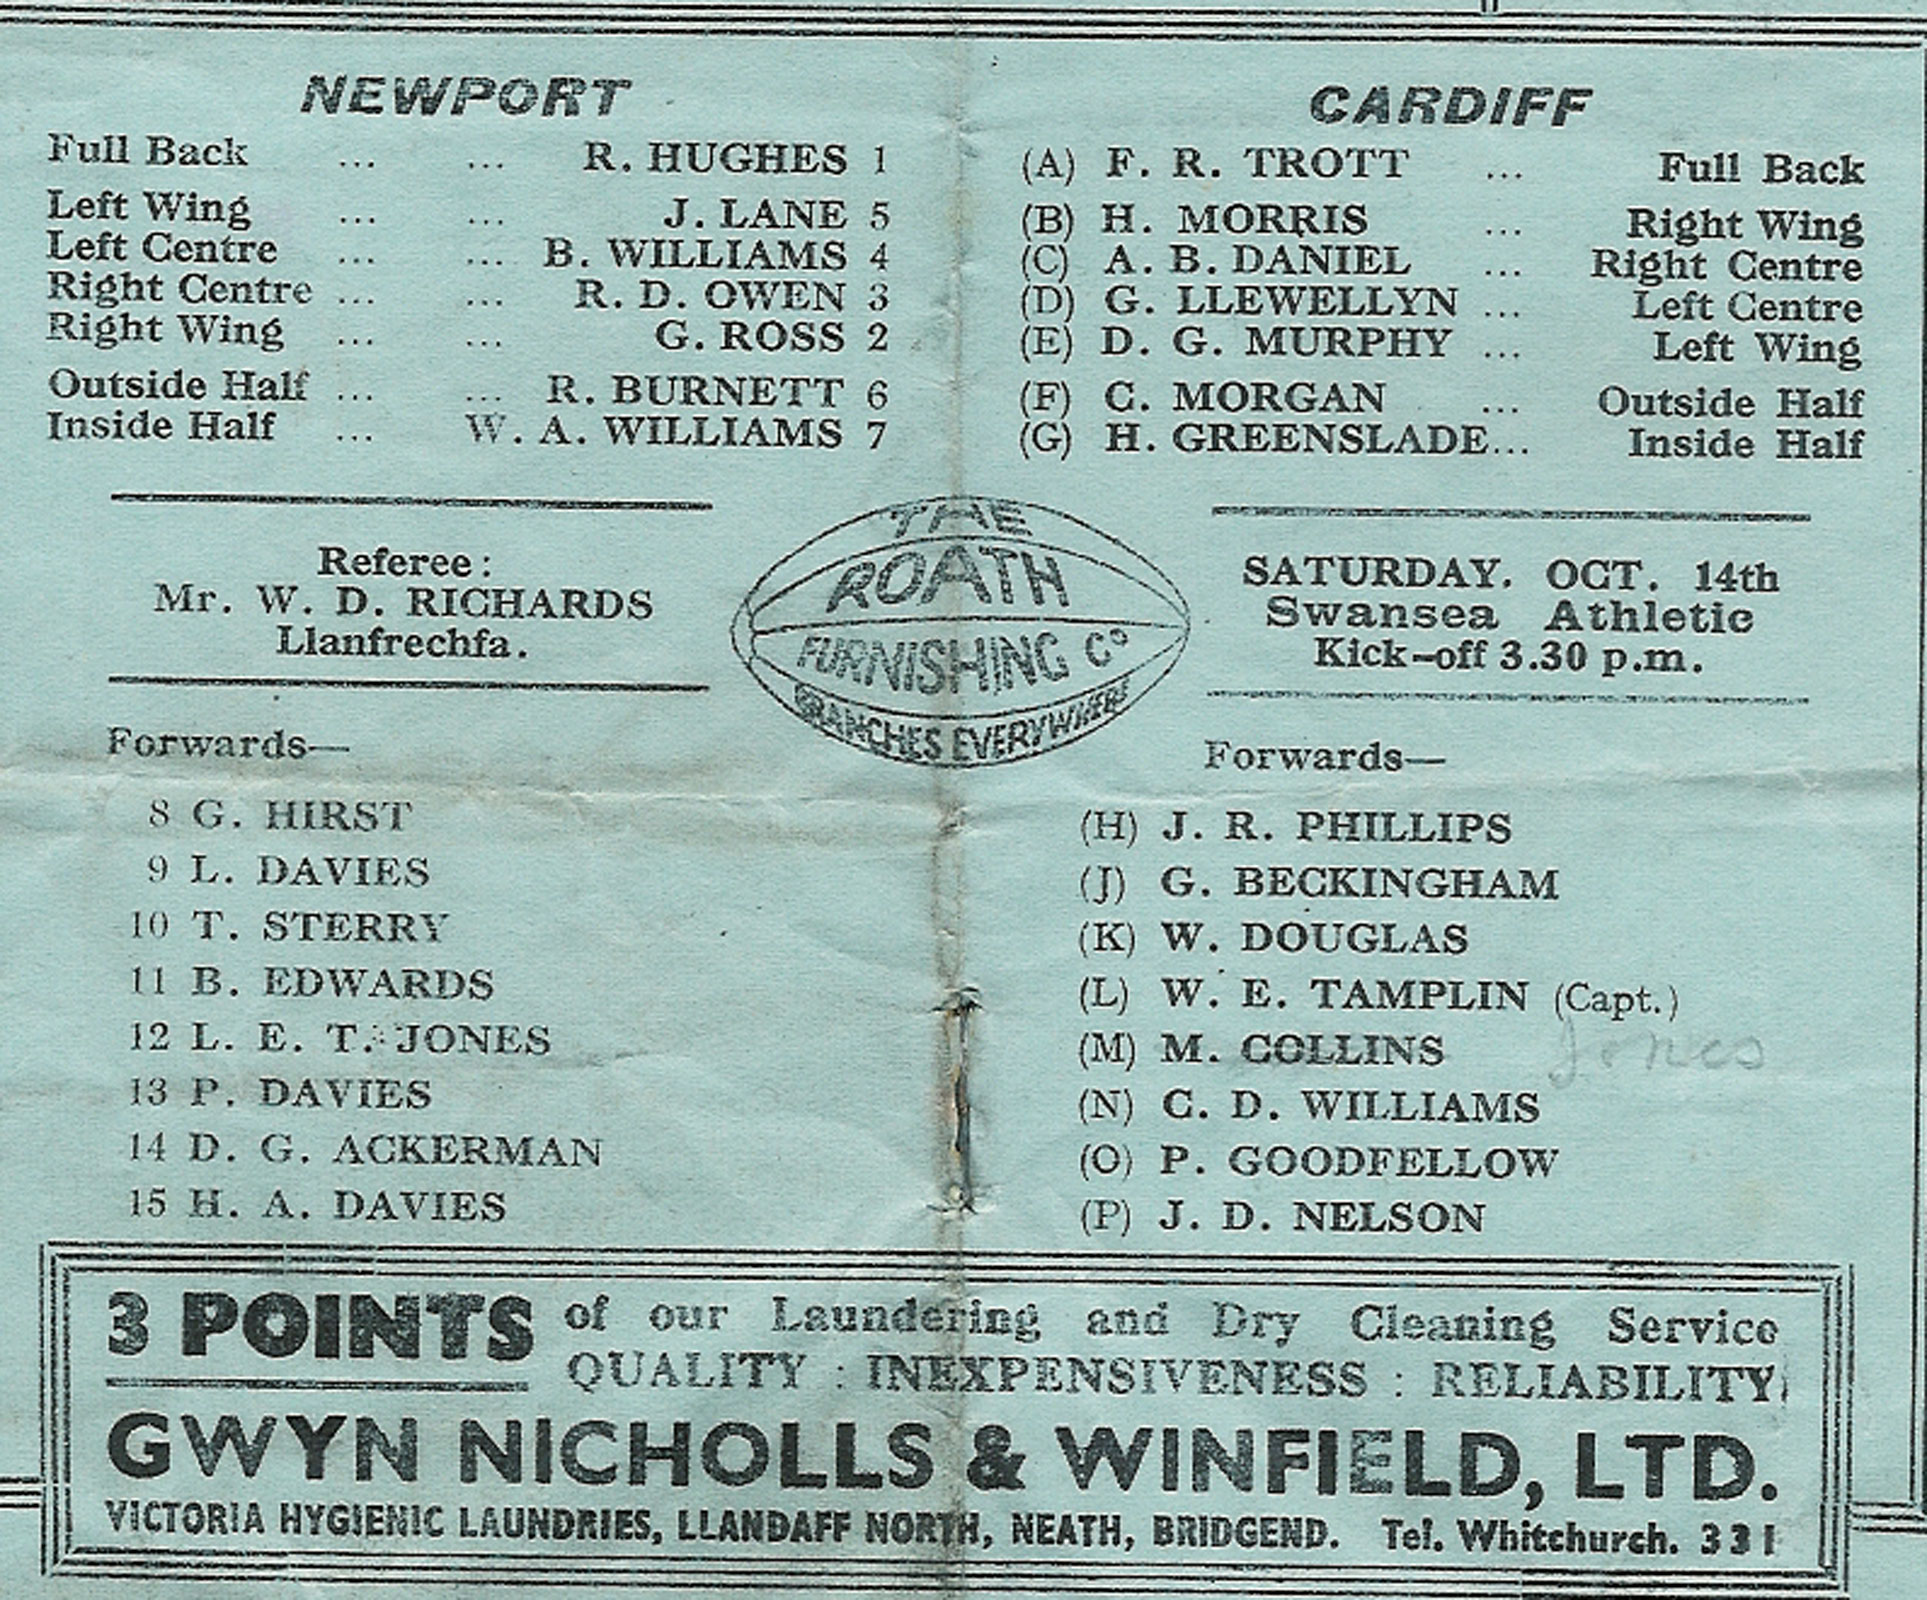 NEWPORT
Full Back ... ... R. HUGHES 1
Left Wing ... ... J. LANE 5
Left Centre ... ... B. WILLIAMS 4
Right Centre ... ... R. D. OWEN 3
Right Wing ... ... G. ROSS 2
Outside Half ... ... R. BURNETT 6
Inside Half ... W. A. WILLIAMS 7
CARDIFF
(A) F. R. TROTT ... Full Back
(B) H. MORRIS ... Right Wing
(C) A. B. DANIEL ... Right Centre
(D) G. LLEWELLYN ... Left Centre
(E) D. G. MURPHY ... Left Wing
(F) C. MORGAN ... Outside Half
(G) H. GREENSLADE... Inside Half
Referee:
Mr. W. D. RICHARDS
Llanfrechfa.
THE
ROATH
FURNISHING Co
BRANCHES EVERYWHERE
SATURDAY. OCT. 14th
Swansea Athletic
Kick-off 3.30 p.m.
Forwards—
8 G. HIRST
9 L. DAVIES
10 T. STERRY
11 B. EDWARDS
12 L. E. T. JONES
13 P. DAVIES
14 D. G. ACKERMAN
15 H. A. DAVIES
Forwards—
(H) J. R. PHILLIPS
(J) G. BECKINGHAM
(K) W. DOUGLAS
(L) W. E. TAMPLIN (Capt.)
(M) M. COLLINS Jones
(N) C. D. WILLIAMS
(O) P. GOODFELLOW
(P) J. D. NELSON
3 POINTS of our Laundering and Dry Cleaning Service
QUALITY : INEXPENSIVENESS : RELIABILITY
GWYN NICHOLLS & WINFIELD, LTD.
VICTORIA HYGIENIC LAUNDRIES, LLANDAFF NORTH, NEATH, BRIDGEND. Tel. Whitchurch. 331